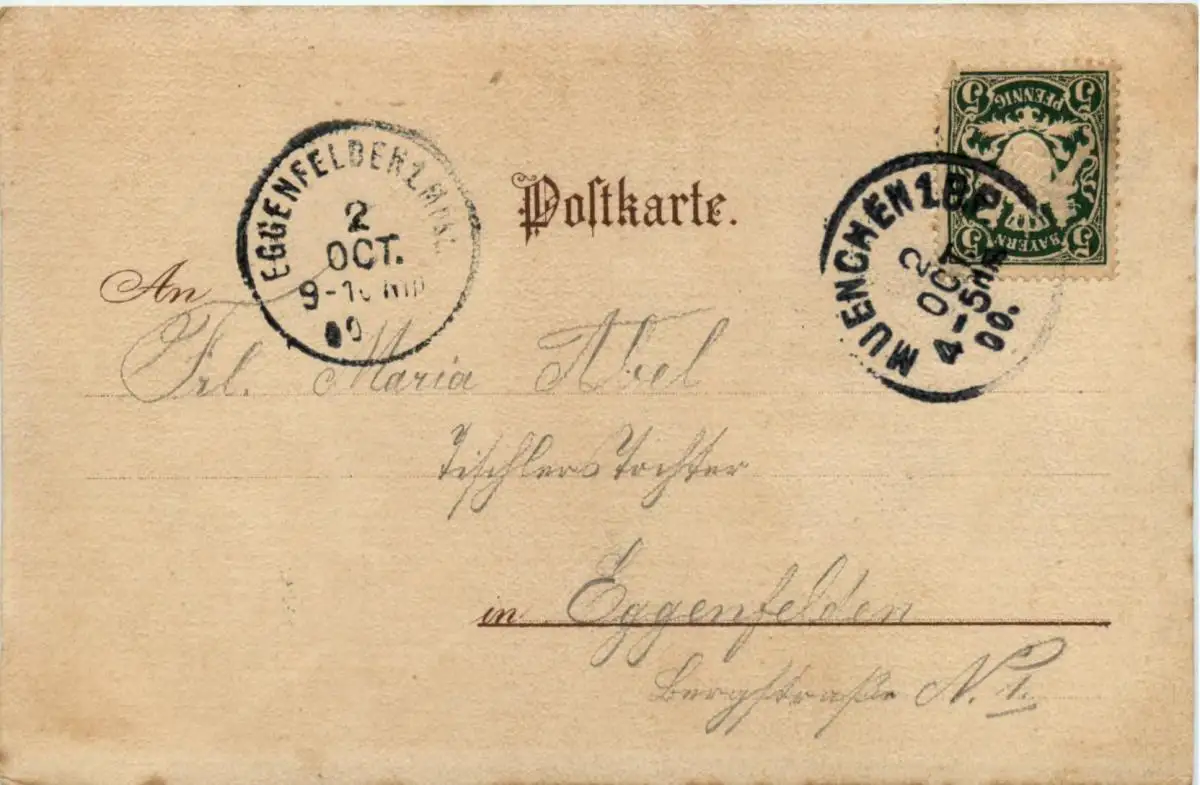 Postkarte.
5 PFENNIG 5
5 BAYERN 5
EGGENFELDEN
2
OCT.
9-10 NM
00
MUENCHEN 1 B.P.
2
OCT
4-5 NM
00.
An
Frl. Maria Abel
Tischlerstochter
in Eggenfelden
Bergstraße N. 1.